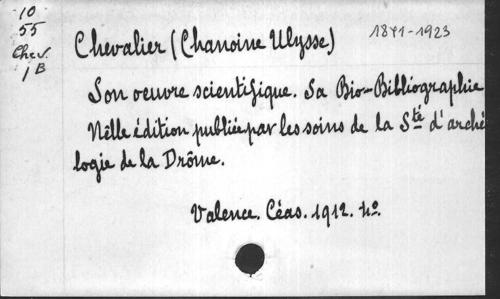 10
55
Chev.
1B
Chevalier (Chanoine Ulysse) 1841-1923
Son oeuvre scientifique. Sa Bio-Bibliographie
Nelle édition publiée par les soins de la Sté d'arché
logie de la Drôme.
Valence. Céas. 1912. 4o.